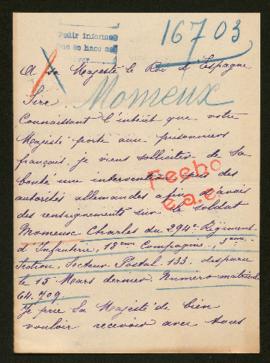 16703
Pedir informe
A Sa Majesté le Roi d'Espagne
Sire
Momeux
Connaissant l'intérêt que votre
Majesté porte aux prisonniers
français, je viens solliciter de sa
bonté une intervention près des
autorités allemandes afin d'avoir
des renseignements sur le soldat
Momeux Charles du 294e Régiment
d'Infanterie, 18ème Compagnie, 3ème
Section, Secteur Postal 133. disparu
le 15 Mars dernier. Numero matricule
64.709
Je prie Sa Majesté de bien
vouloir recevoir avec tous